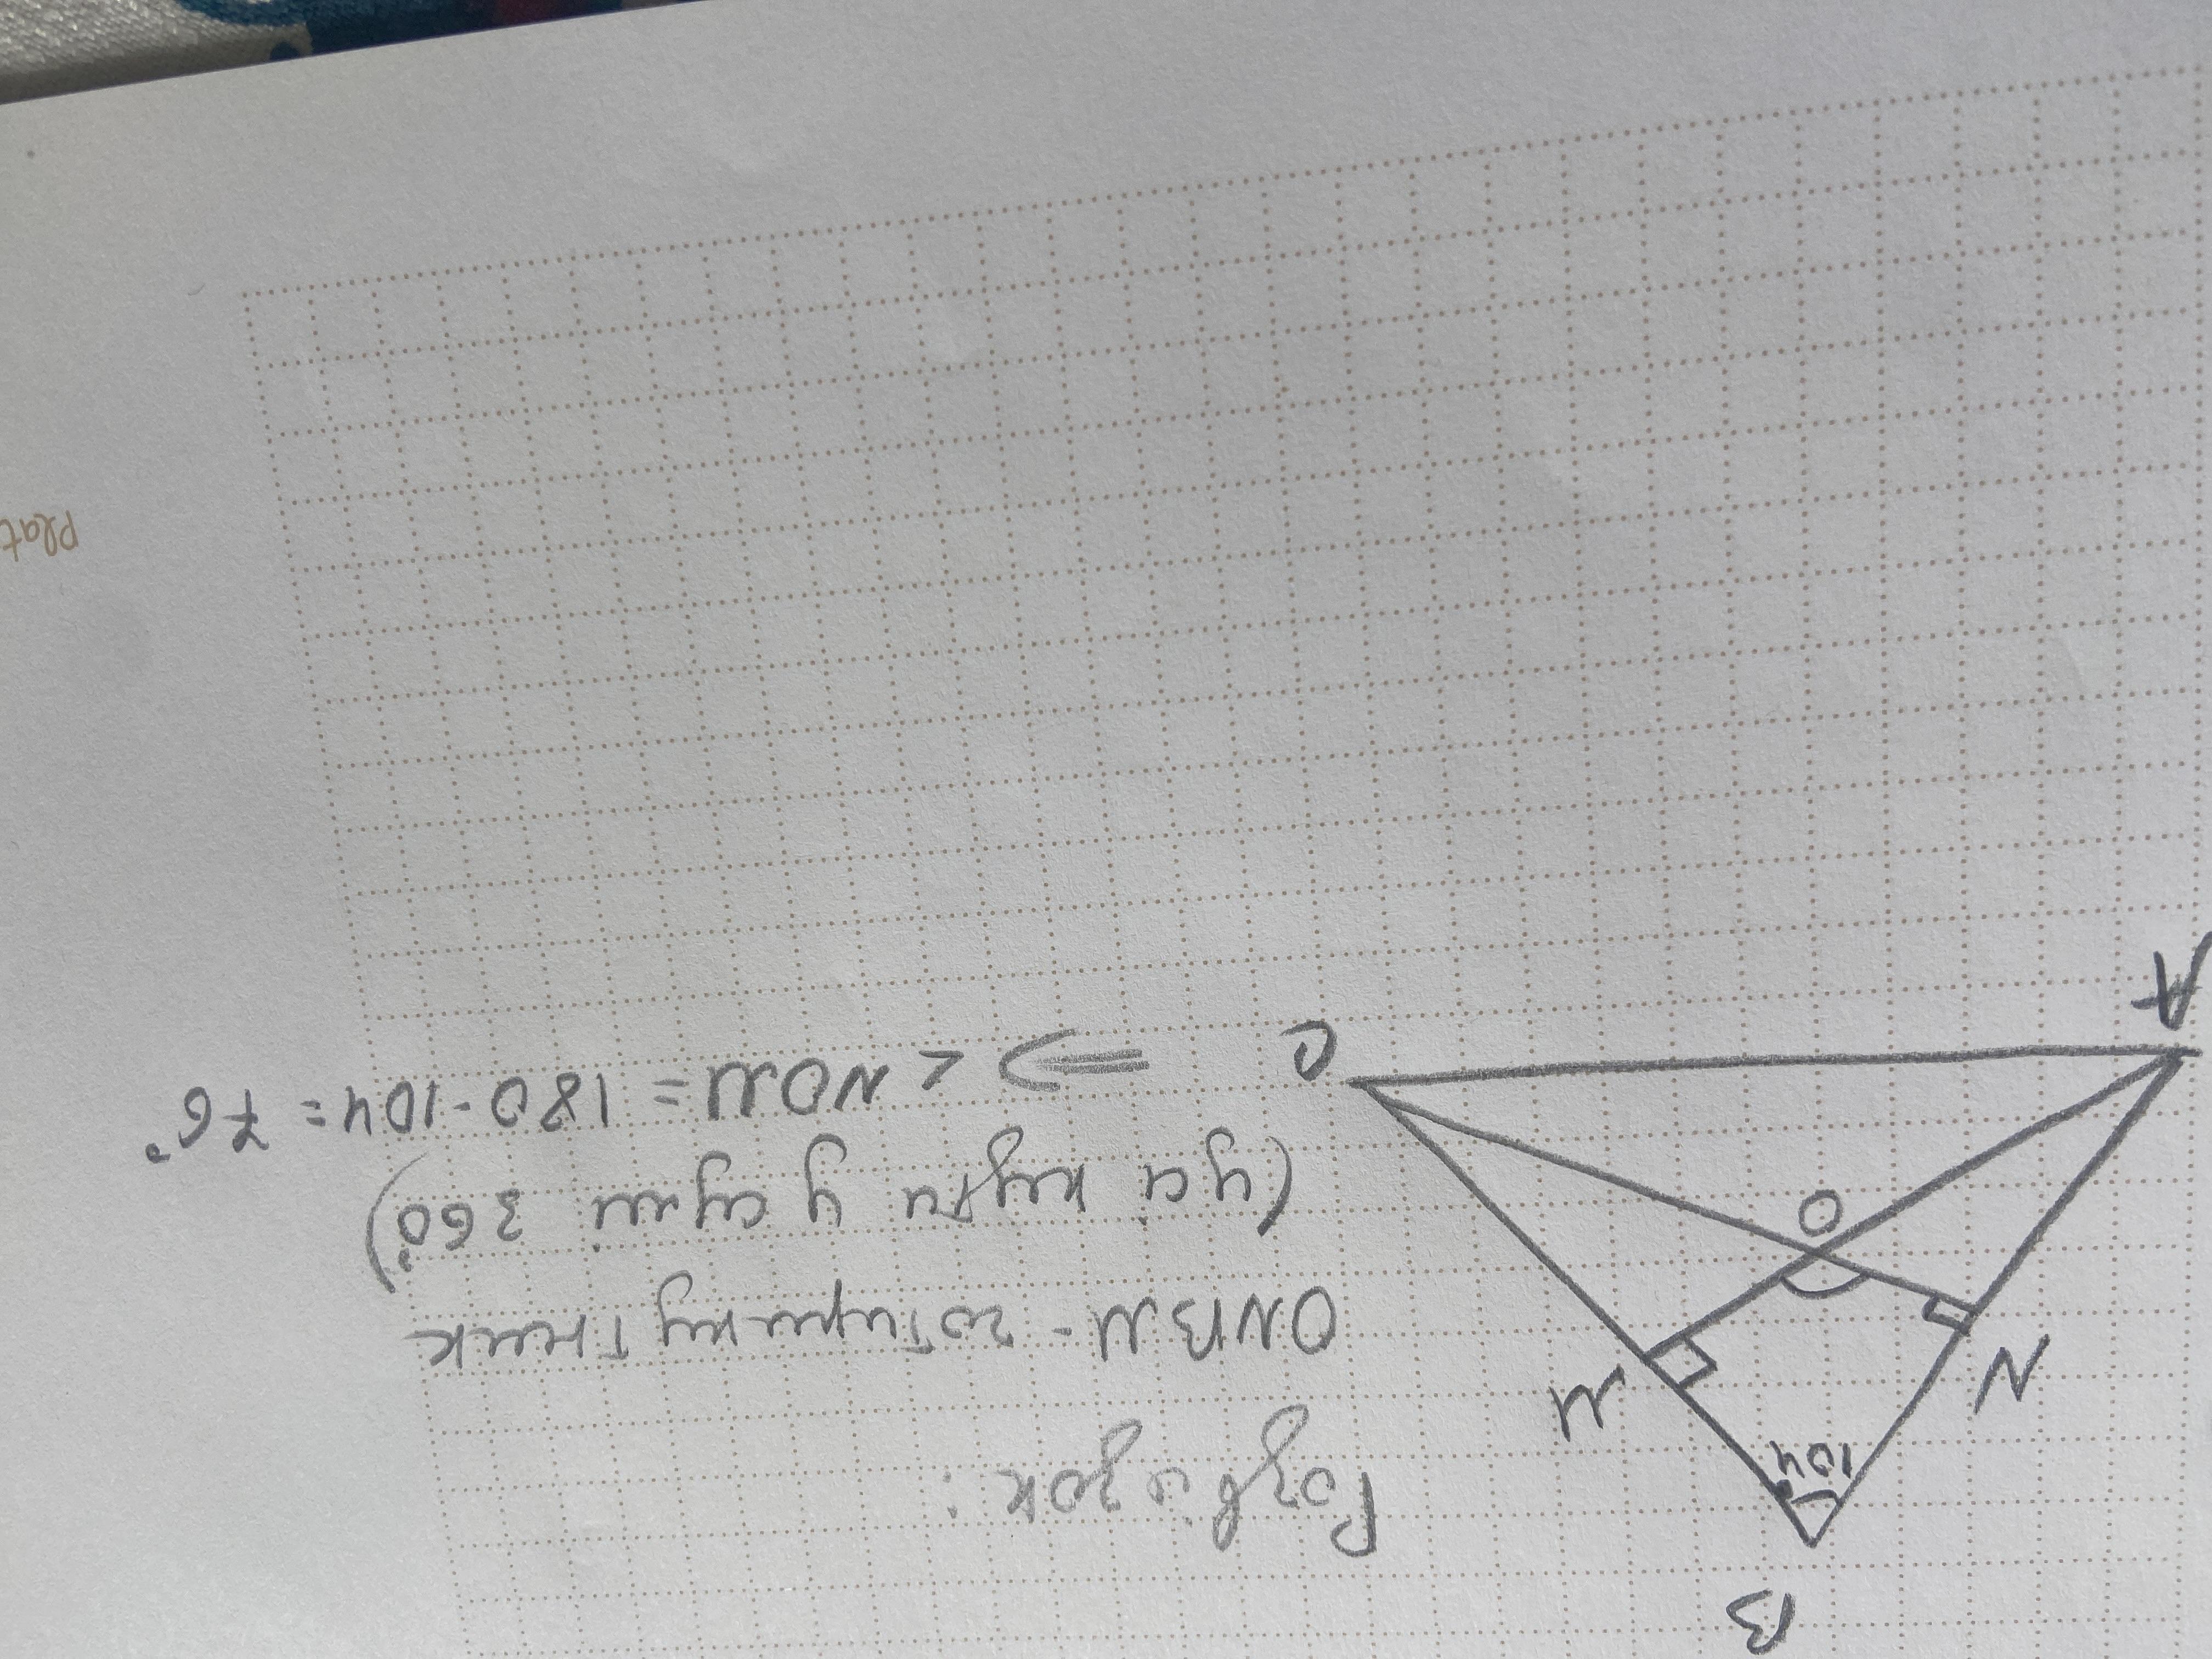 B
Розв'язок:
104°
N
M
ONBM - чотирикутник
O
(усі кути у сумі 360°)
A
C
=> < NOM = 180-104= 76°
Plat